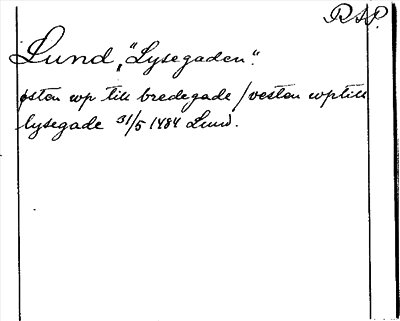 RAP.
Lund, "Lysegaden".
østen wp till bredegade / vesten wp till
lysegade 31/5 1484 Lund.